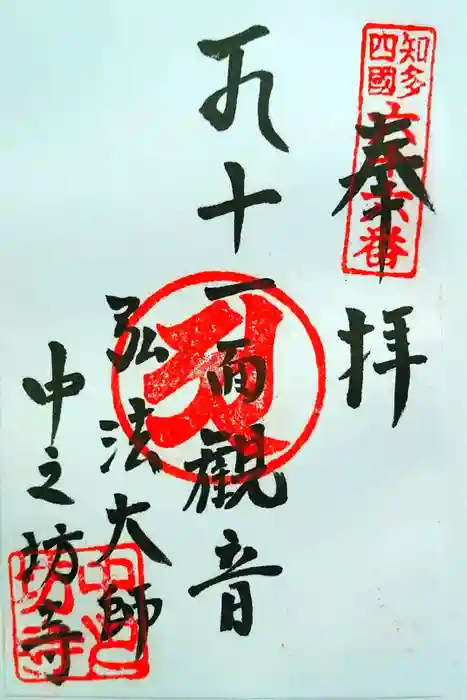 知多
四國
六十六番
奉拝
十一面觀音
弘法大師
中之坊寺
中之
坊寺